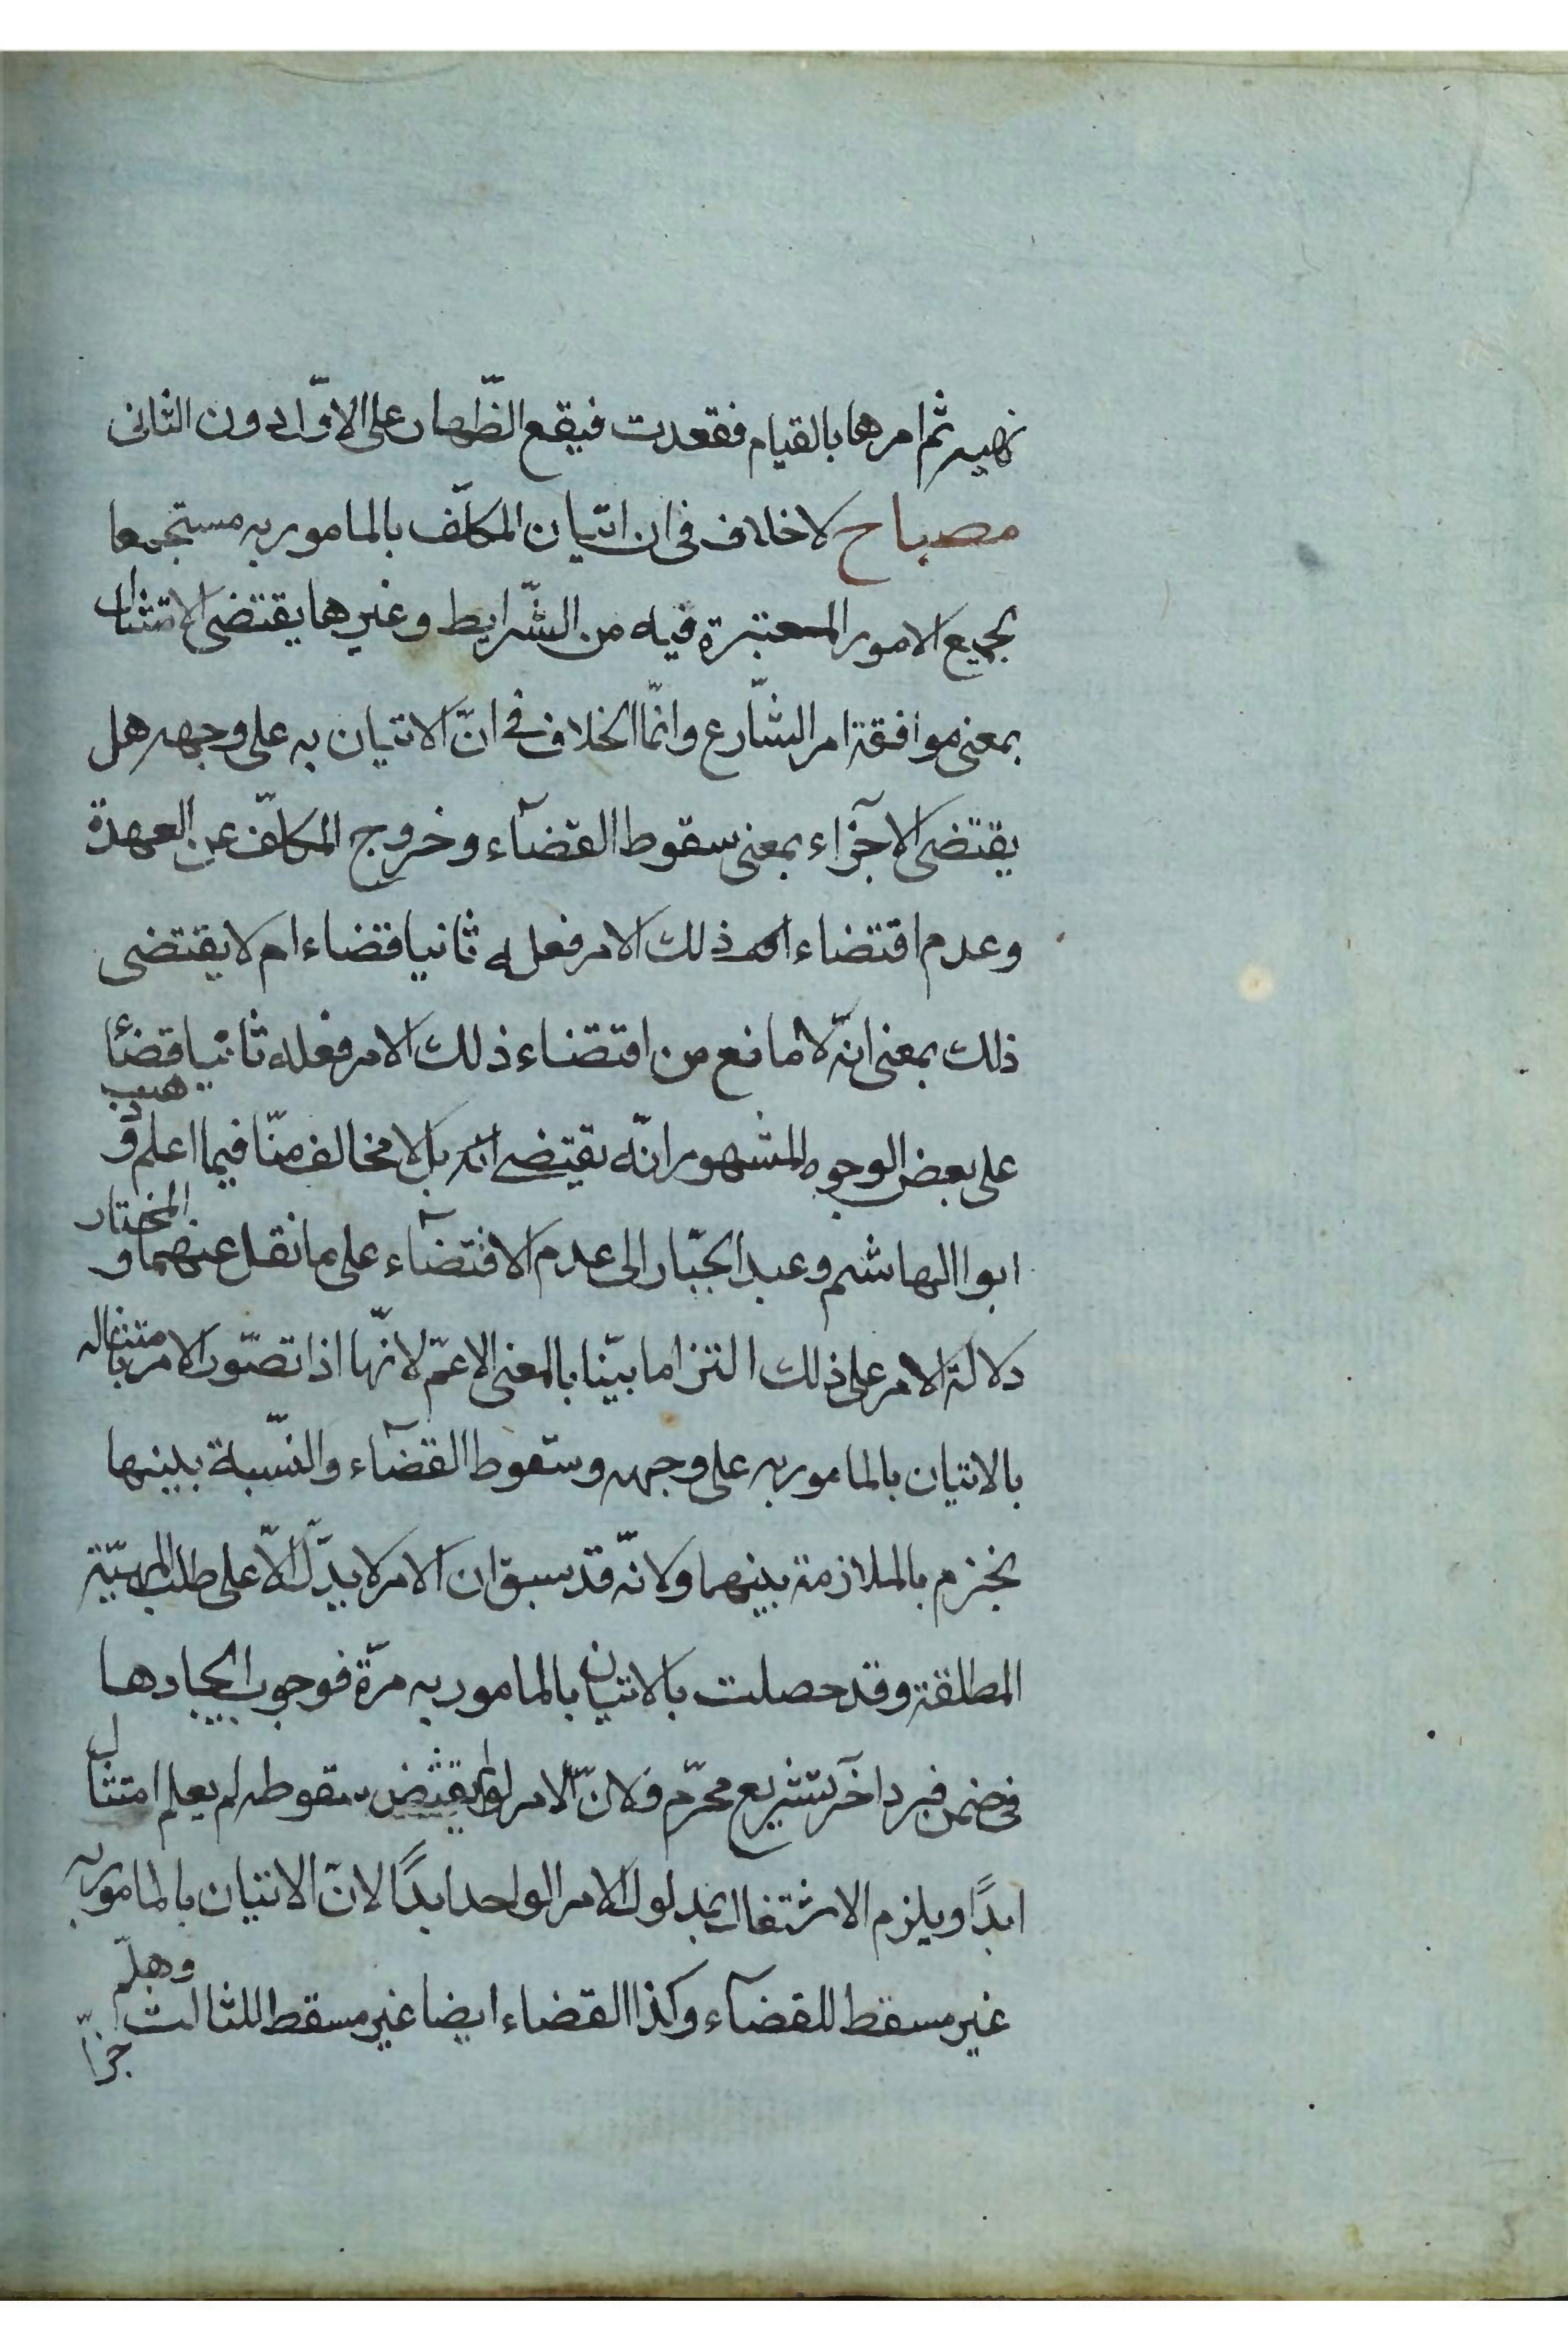 نهيه ثم امرها بالقيام فقعدت فيقع الظّهار على الاوّل دون الثانى
مصباح لا خلاف فى ان اتيان المكلّف بالمامور به مستجمعا
بجميع الامور المعتبرة فيه من الشّرايط وغيرها يقتضى الامتثال
بمعنى موافقة امر الشّارع وانّما الخلاف فى انّ الاتيان به على وجهه هل
يقتضى الاجزآء بمعنى سقوط القضآء وخروج المكلّف عن العهدة
وعدم اقتضاء ذلك الامر فعله ثانيا قضاء ام لا يقتضى
ذلك بمعنى انّه لا مانع من اقتضاء ذلك الامر فعله ثانيا قضائا
على بعض الوجوه المشهور انّه يقتضى بل لا مخالف منّا فيما اعلم وذهب
ابوا الهاشم وعبد الجبّار الى عدم الاقتضآء على ما نقل عنهما والمختار
دلالة الامر على ذلك التزاما بيّنا بالمعنى الاعمّ لانّها اذا تصّور الامر بامتثاله
بالاتيان بالمامور به على وجهه وسقوط القضآء والنّسبة بينها
نجزم بالملازمة بينهما ولانّه قد سبق ان الامر لا يدّل الّا على طلب المهيّة
المطلقة وقد حصلت بالاتيان بالمامور به مرّة فوجوب ايجادها
فى ضمن فرد اخر تشريع محرّم ولانّ الامر لو لم يقتض سقوطه لم يعلم امتثال
ابدًا ويلزم الاشتغال بمدلول الامر الواحد ابدًا لانّ الاتيان بالمامور به
غير مسقط للقضآء وكذا القضاء ايضا غير مسقط للثالث وهلّم جرّا